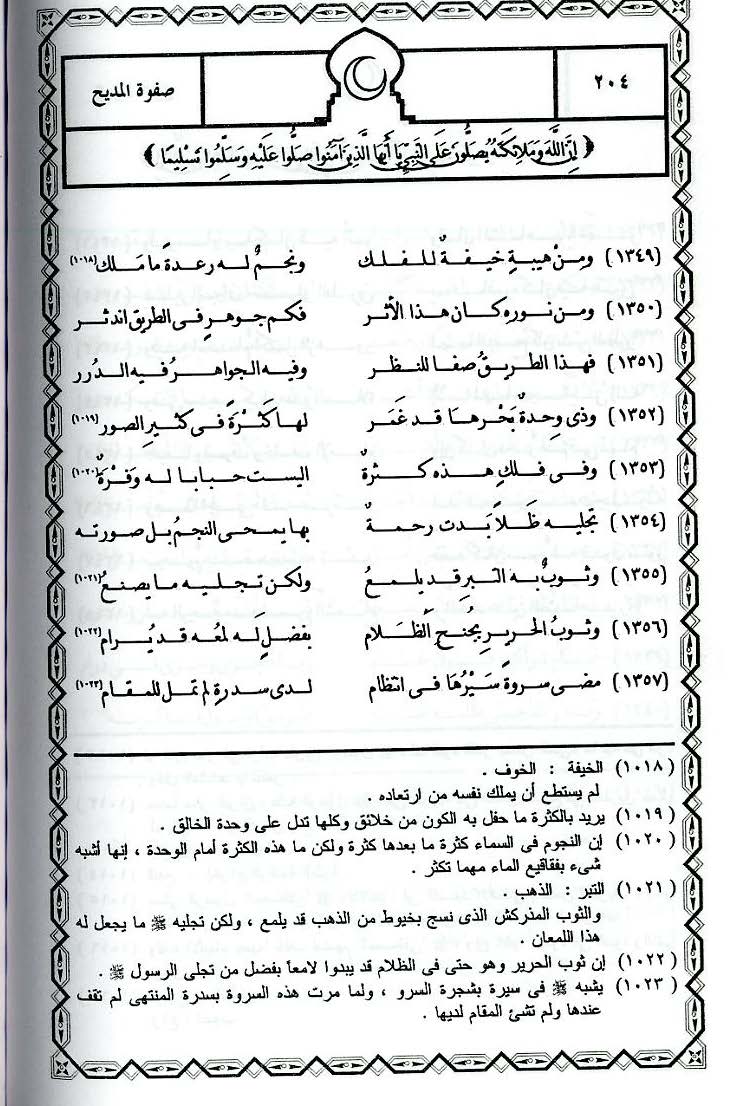 ٢٠٤
صفوة المديح
﴿ إِنَّ اللَّهَ وَمَلَائِكَتَهُ يُصَلُّونَ عَلَى النَّبِيِّ يَا أَيُّهَا الَّذِينَ آمَنُوا صَلُّوا عَلَيْهِ وَسَلِّمُوا تَسْلِيمًا ﴾
(١٣٤٩) ومن هيبةٍ خيفةٌ للفلك ونجمٌ له رعدة ما ملك (١٠١٨)
(١٣٥٠) ومن نوره كان هذا الأثر فكم جوهرٍ فى الطريق اندثر
(١٣٥١) فهذا الطريقُ صفا للنظر وفيه الجواهر فيه الدرر
(١٣٥٢) وذى وحدةٌ بَحْرها قد غَمَر لها كثْرَةً فى كثيرِ الصور (١٠١٩)
(١٣٥٣) وفى فلكٍ هذه كثرةٌ اليست حبابا له وَفْرَةٌ (١٠٢٠)
(١٣٥٤) تجليه ظَلاًّ بَدت رحمةٌ بها يمحى النجمُ بل صورته
(١٣٥٥) وثوبٌ به التبر قد يلمعُ ولكن تجليه ما يصنعُ (١٠٢١)
(١٣٥٦) وثوبُ الحريرِ بجُنحِ الظَّلام بفضلٍ له لمعُه قد يُرام (١٠٢٢)
(١٣٥٧) مضى سروةً سَيْرُهَا فى انتظام لدى سدرةٍ لم تمل للمقام (١٠٢٣)
(١٠١٨) الخيفة : الخوف .
لم يستطع أن يملك نفسه من ارتعاده .
(١٠١٩) يريد بالكثرة ما حفل به الكون من خلائق وكلها تدل على وحدة الخالق .
(١٠٢٠) إن النجوم فى السماء كثرة ما بعدها كثرة ولكن ما هذه الكثرة أمام الوحدة ، إنها أشبه
شىء بفقاقيع الماء مهما تكثر .
(١٠٢١) التبر : الذهب .
والثوب المذركش الذى نسج بخيوط من الذهب قد يلمع ، ولكن تجليه ﷺ ما يجعل له
هذا اللمعان .
(١٠٢٢) إن ثوب الحرير وهو حتى فى الظلام قد يبدوا لامعاً بفضل من تجلى الرسول ﷺ .
(١٠٢٣) يشبه ﷺ فى سيرة بشجرة السرو ، ولما مرت هذه السروة بسدرة المنتهى لم تقف
عندها ولم تشئ المقام لديها .